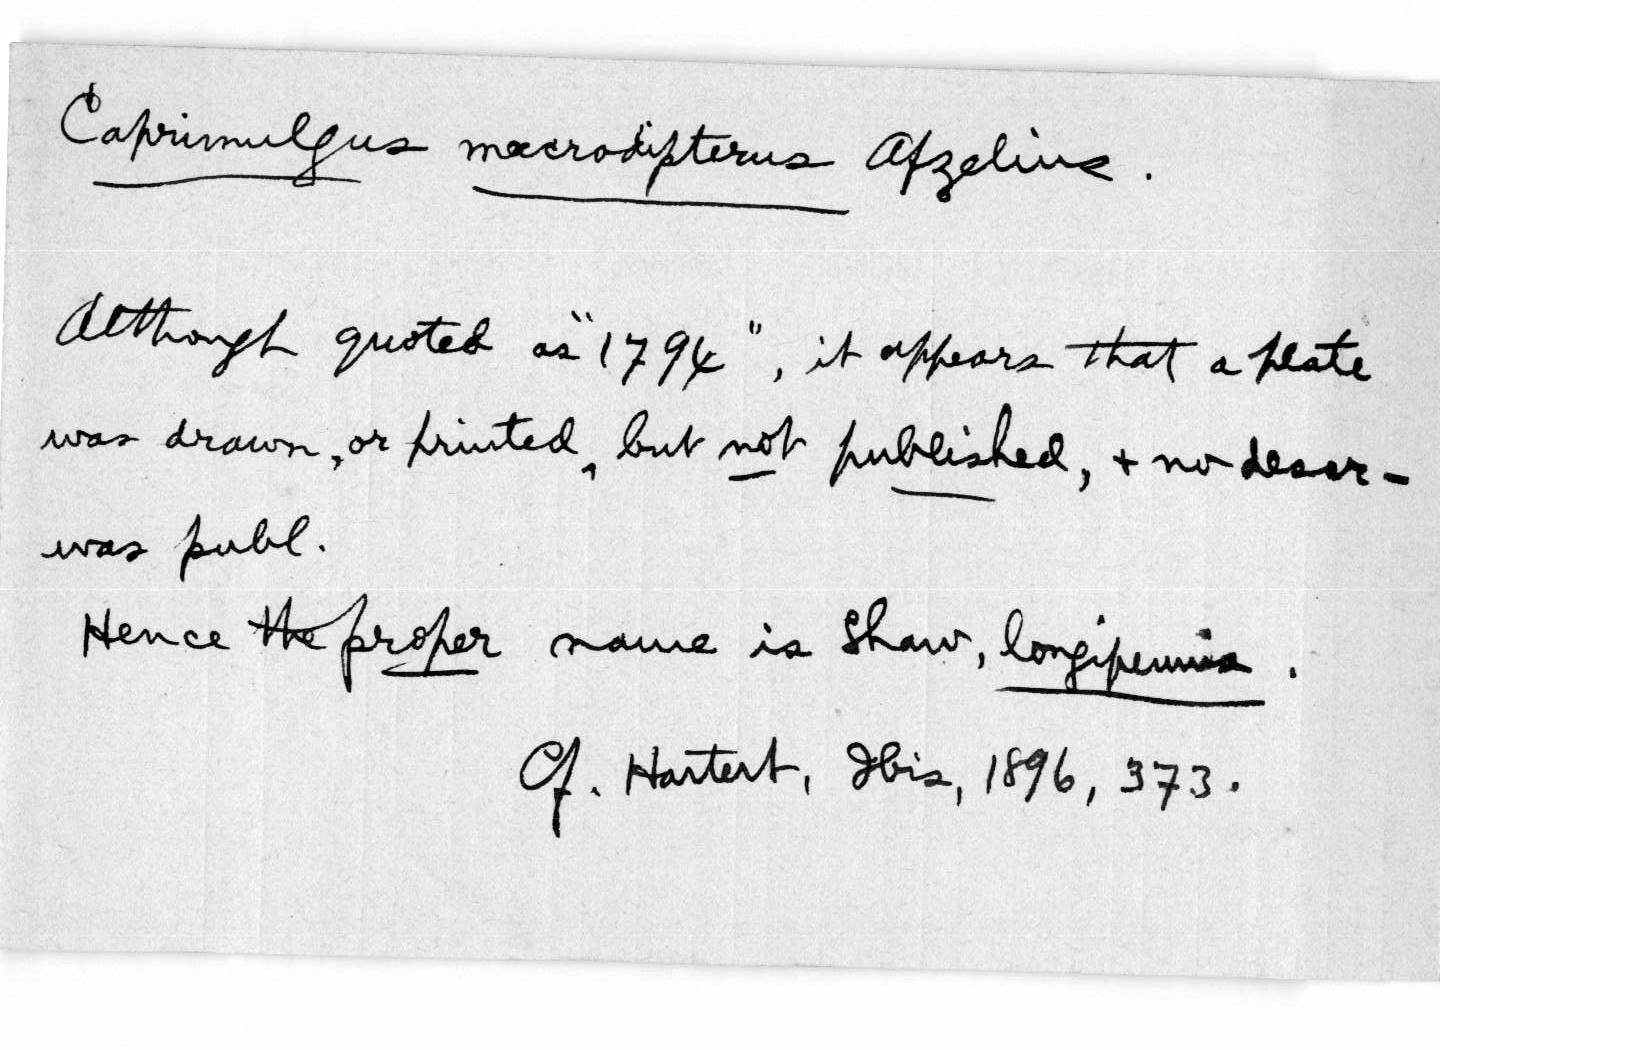 Caprimulgus macrodipterus Afzelius.
Although quoted as "1794", it appears that a plate
was drawn, or printed, but not published, + no descr-
was publ.
Hence the proper name is Shaw, longipennis.
Cf. Hartert, Ibis, 1896, 373.